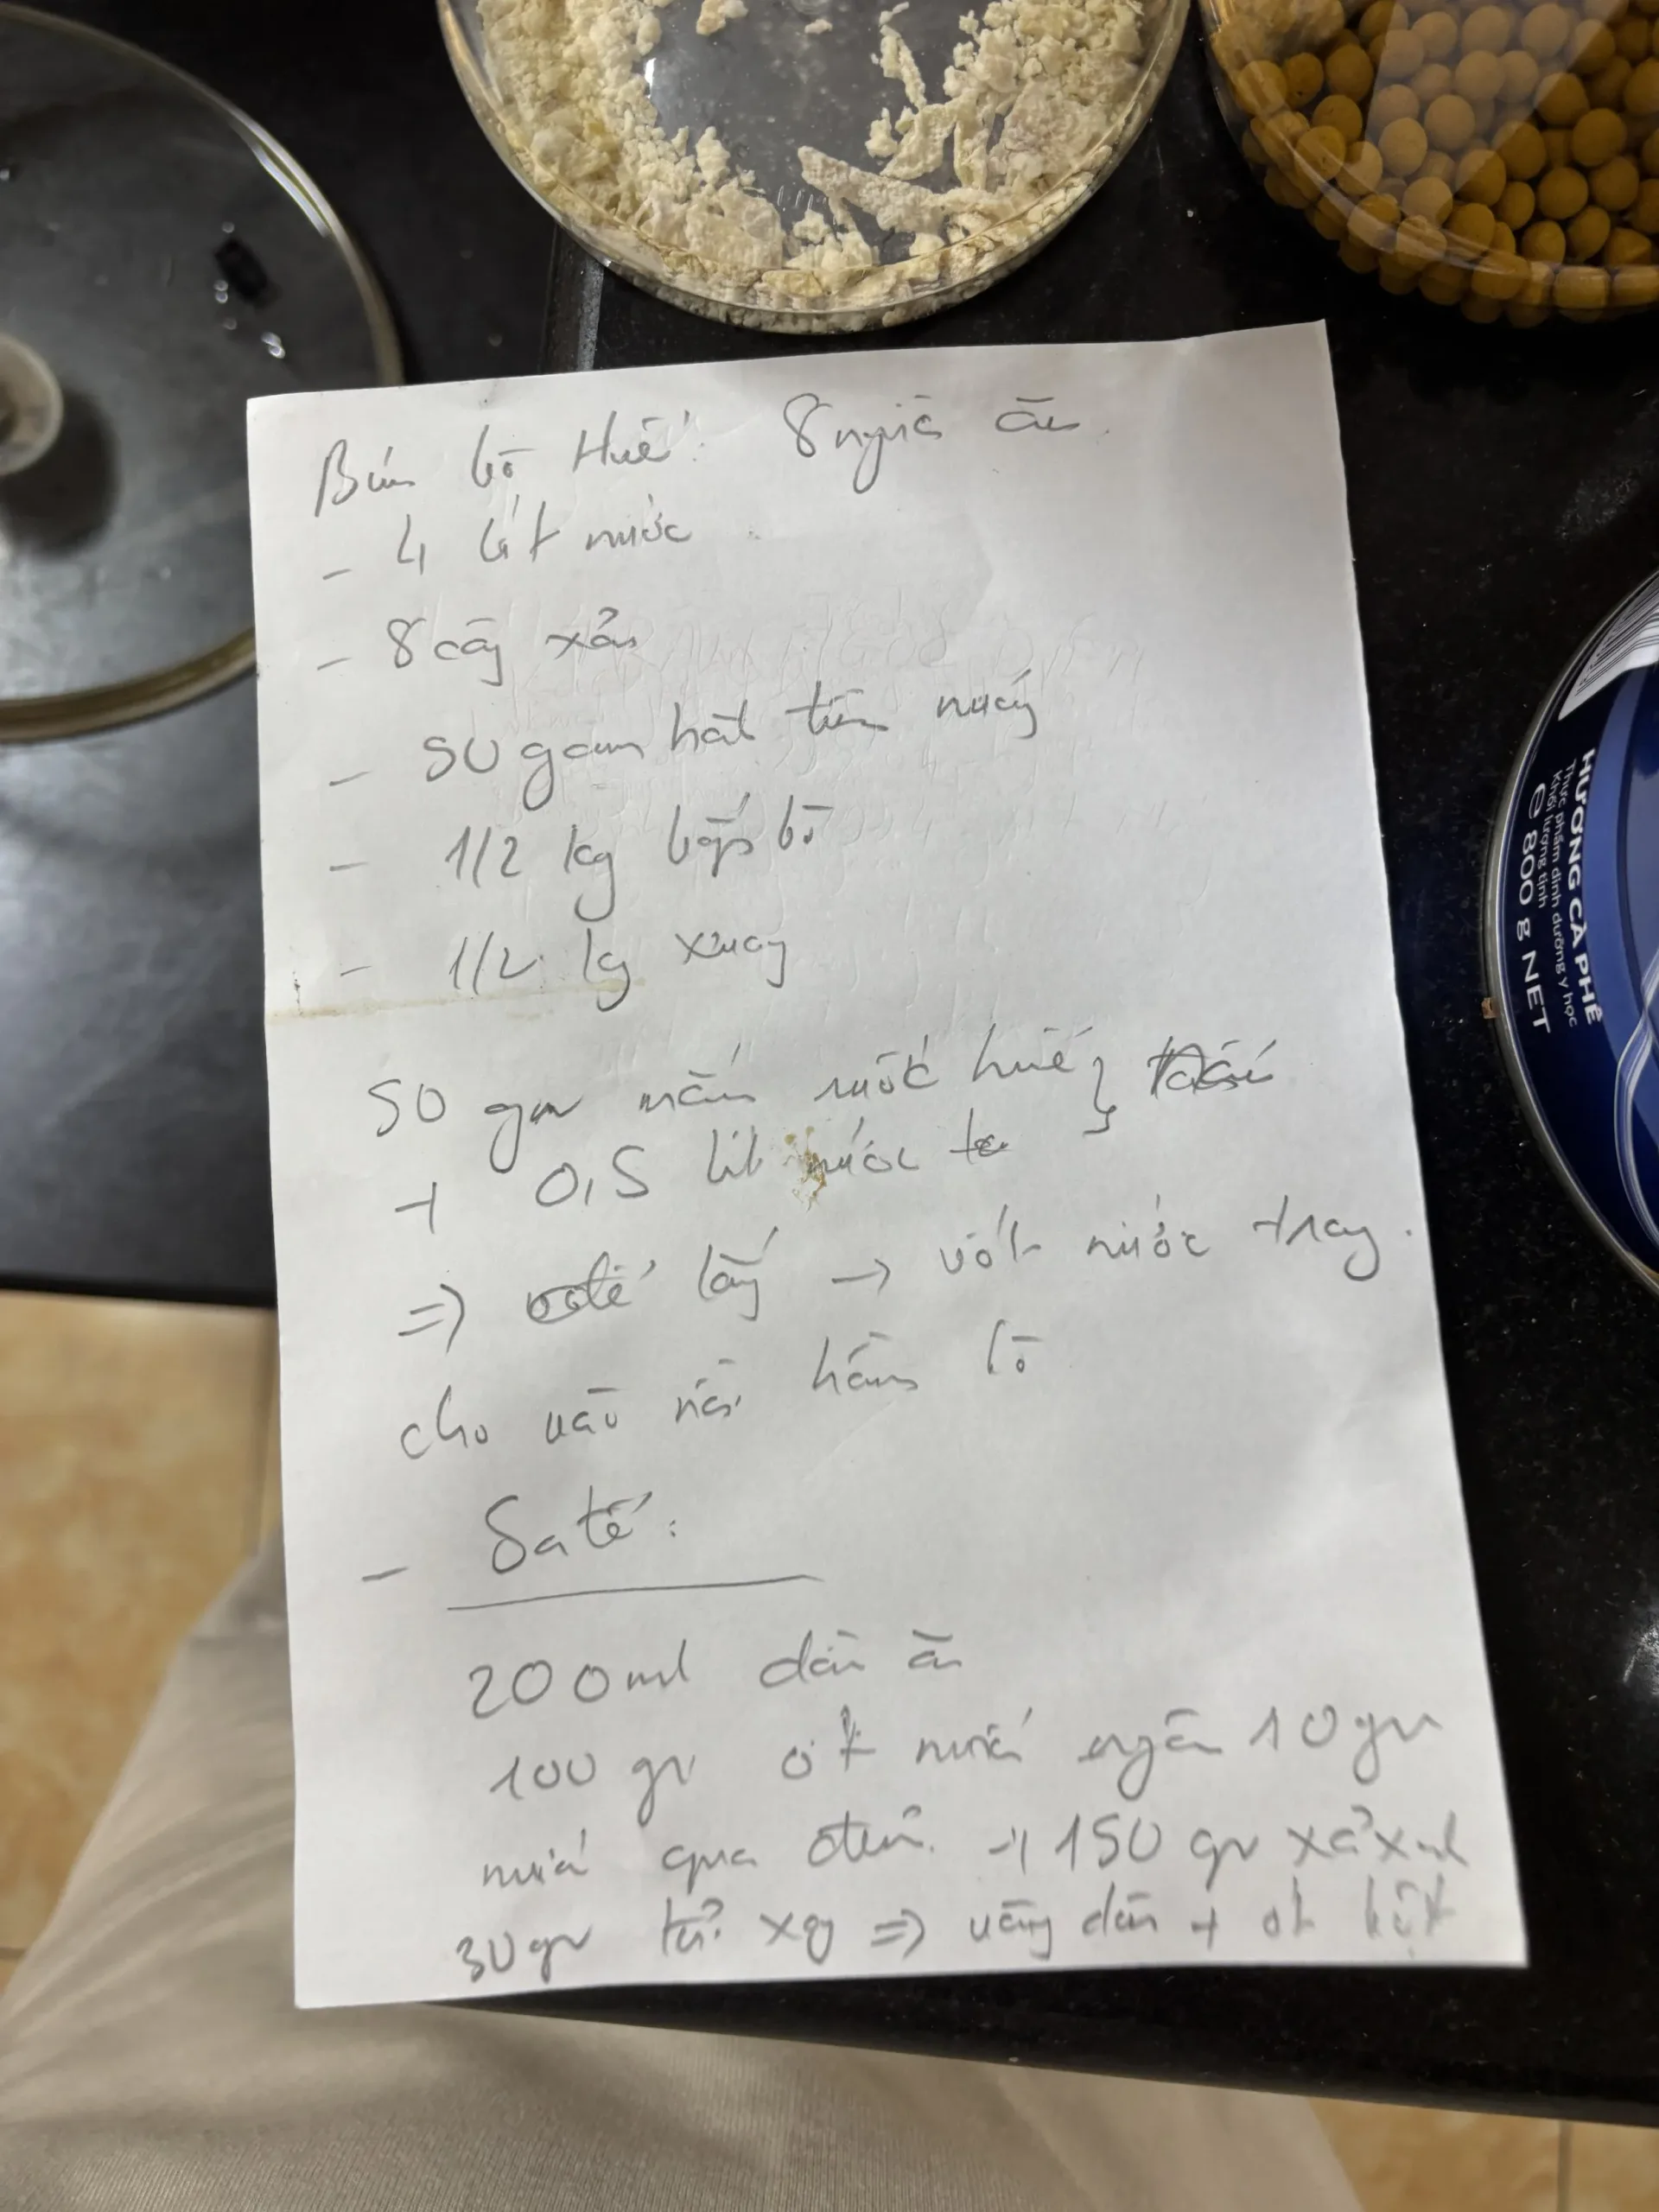 Bún bò Huế: 8 người ăn
- 4 lít nước
- 8 cây xả
- 50 gam hạt tiêu
- 1/2 kg bắp bò
- 1/2 kg xương
50 gr mắm ruốc huế }
+ 0,5 lít nước
=> lấy -> vớt nước trong.
cho vào nồi hầm bò
- Sa tế:
200ml dầu ăn
100 gr ớt 10gr
150 gr xả
30gr tỏi xay => váng dầu + ớt bột
HƯƠNG CÀ PHÊ
Thực phẩm dinh dưỡng y học
Khối lượng tịnh
e 800 g NET